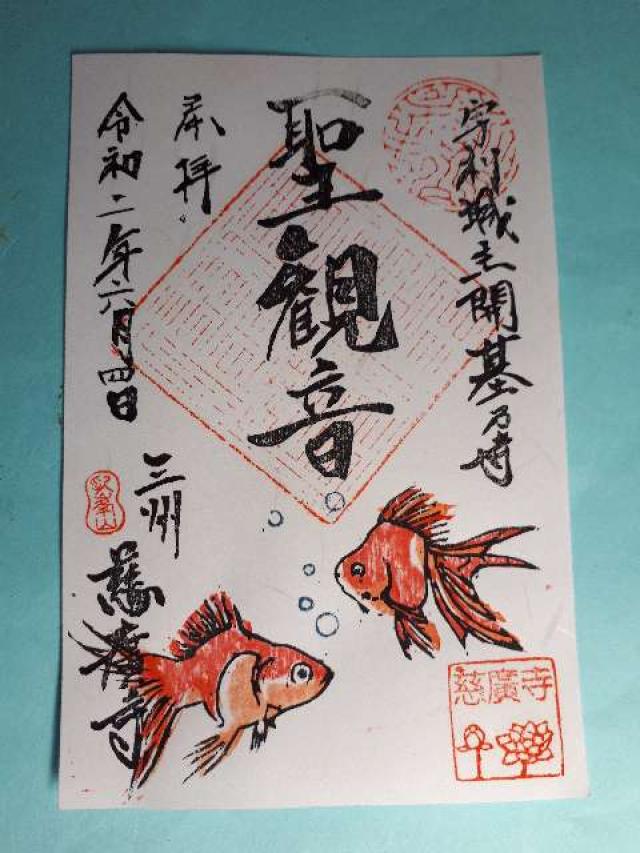 宇利城主開基乃寺
聖観音
奉拝
令和二年六月四日
三州
慈廣寺
慈廣寺